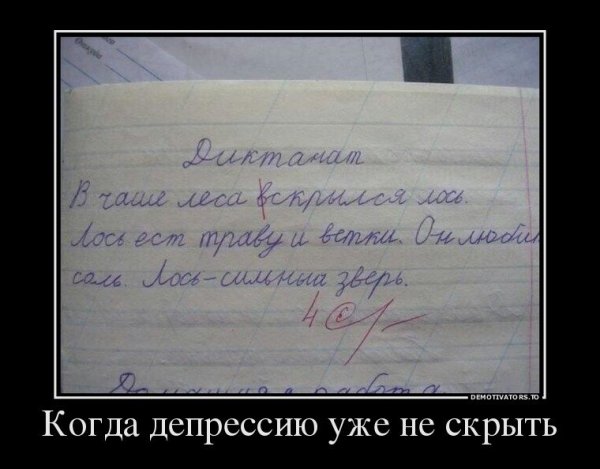 Диктанат
В чаше леса вскрылся лось.
Лось ест траву и ветки. Он любит
соль. Лось-сильныа зверь.
4 С/-
Домашня работа
DEMOTIVATORS.TO
Когда депрессию уже не скрыть